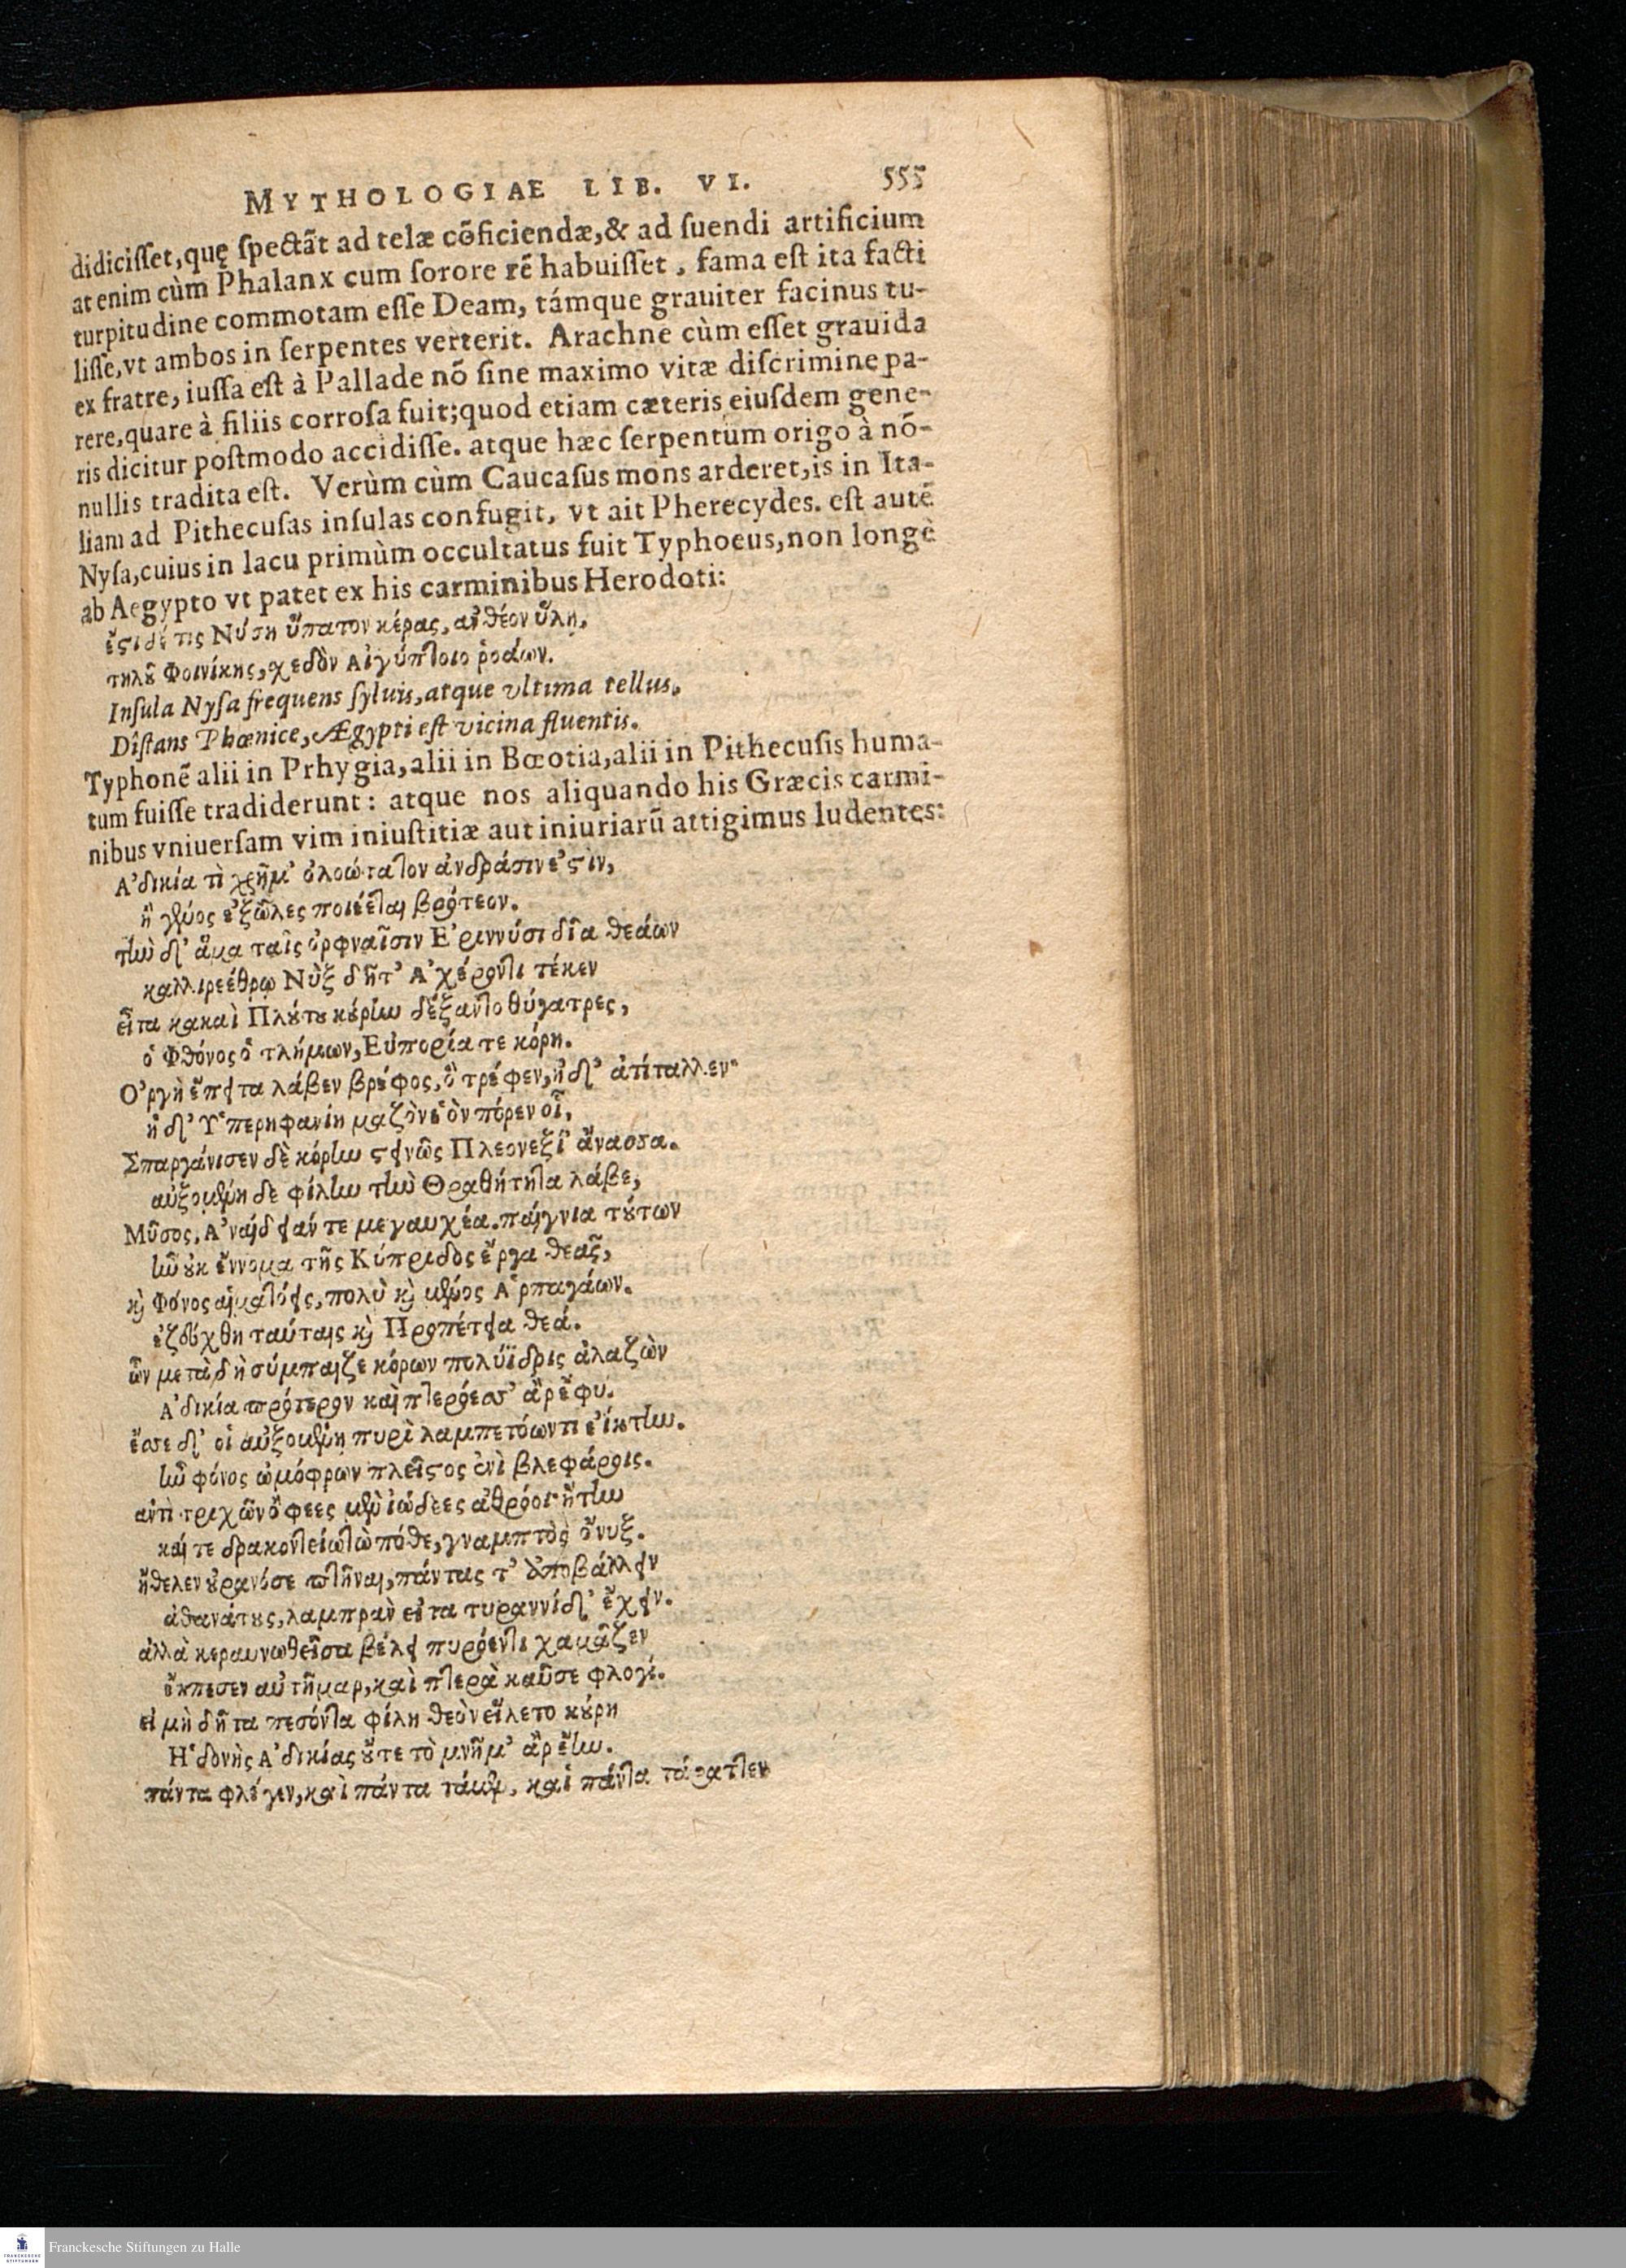 MYTHOLOGIAE LIB. VI. 555
didiciſſet,quę ſpectãt ad telæ cõficiendæ,& ad ſuendi artificium
at enim cùm Phalanx cum ſorore rẽ habuiſſet, fama eſt ita facti
turpitudine commotam eſſe Deam, támque grauiter facinus tu-
liſſe,vt ambos in ſerpentes verterit. Arachne cùm eſſet grauida
ex fratre, iuſſa eſt à Pallade nõ ſine maximo vitæ diſcrimine pa-
rere,quare à filiis corroſa fuit;quod etiam cæteris eiuſdem gene-
ris dicitur poſtmodo accidiſſe. atque hæc ſerpentum origo à nõ-
nullis tradita eſt. Verùm cùm Caucaſus mons arderet,is in Ita-
liam ad Pithecuſas inſulas confugit, vt ait Pherecydes. eſt autẽ
Nyſa,cuius in lacu primùm occultatus fuit Typhoeus,non longè
ab Aegypto vt patet ex his carminibus Herodoti:
ἔςι δέ τις Νύση ὕπατον κέρας, ἀνθέον ὕλη,
τηλȣ̃ Φοινίκης, χεδὸν Αἰγύπτοιο ῥοάων.
Inſula Nyſa frequens ſyluis,atque vltima tellus,
Diſtans Phœnice, Ægypti eſt vicina fluentis.
Typhonẽ alii in Prhygia,alii in Bœotia,alii in Pithecuſis huma-
tum fuiſſe tradiderunt: atque nos aliquando his Græcis carmi-
nibus vniuerſam vim iniuſtitiæ aut iniuriarũ attigimus ludentes:
Α᾿δικία τὶ χρῆμ᾿ ὀλοώτατον ἀνδράσιν ἐςὶν,
ἢ γένος ἐξῶλες ποιέεται βρότεον.
τὴν δ᾿ ἅμα ταῖς ὀρφναῖσιν Ε᾿ριννύσι δῖα θεάων
καλλιρεέθρῳ Νὺξ δῆτ᾿ Α᾿χέροντι τέκεν
εἶτα κακαὶ Πλȣ́τȣ κȣ́ρην δέξαντο θύγατρες,
ὁ Φθόνος ὁ τλήμων, Εὐπορία τε κόρη.
Ο᾿ργὴ ἔπειτα λάβεν βρέφος, ὃ τρέφεν, ἠδ᾿ ἀτίταλλεν·
ἡ δ᾿ Υ῾περηφανίη μαζὸν ἑὸν πόρεν οἷ,
Σπαργάνισεν δὲ κόρην ςεινῶς Πλεονεξί᾿ ἄνασσα.
αὐξομένη δε φίλην τὴν Θραθήτητα λάβε,
Μῦσος, Α᾿ναιδειάν τε μεγαυχέα. παίγνια τȣ́των
ἦν ȣκ ἔννομα τῆς Κύπριδος ἔργα θεᾶς,
καὶ Φόνος αἱματόεις, πολὺ καὶ μένος Α῾ρπαγάων.
ἐζεύχθη ταύταις καὶ Προπέτεια θεά.
ὧν μετὰ δὴ σύμπαιζε κόρων πολύϊδρις ἀλαζὼν
Α᾿δικία πρότερον καὶ πτερόεσσ᾿ ἂρ ἔφυ.
ἔσσε δ᾿ οἱ αὐξομένη πυρὶ λαμπετόωντι ἐΐκτην.
ἦν φόνος ὠμόφρων πλεῖςος ἐνὶ βλεφάροις.
ἀντὶ τριχῶν ὄφεες μὲν ἰώδεες ἀθρόοι ἤτην
καί τε δρακοντείων πόθε, γναμπτὸς ὄνυξ.
ἤθελεν ȣρανόσε πτῆναι, πάντας τ᾿ ἀποβάλλειν
ἀθανάτȣς, λαμπρὰν εἶτα τυραννίδ᾿ ἔχειν.
ἀλλὰ κεραυνωθεῖσα βέλει πυρόεντι χαμᾶζεν
ἔκπεσεν αὐτῆμαρ, καὶ πτερὰ καῦσε φλογί.
εἰ μὴ δῆτα πεσόντα φίλη θεὸν εἵλετο κȣ́ρη
Η῾δονὴς Α᾿δικίας ȣ῎τε τὸ μνῆμ᾿ ἂρ ἔην.
πάντα φλέγεν, καὶ πάντα τάμεν, καὶ πάντα τάρατ῀εν
Franckesche Stiftungen zu Halle
FRANCKESCHE
STIFTUNGEN